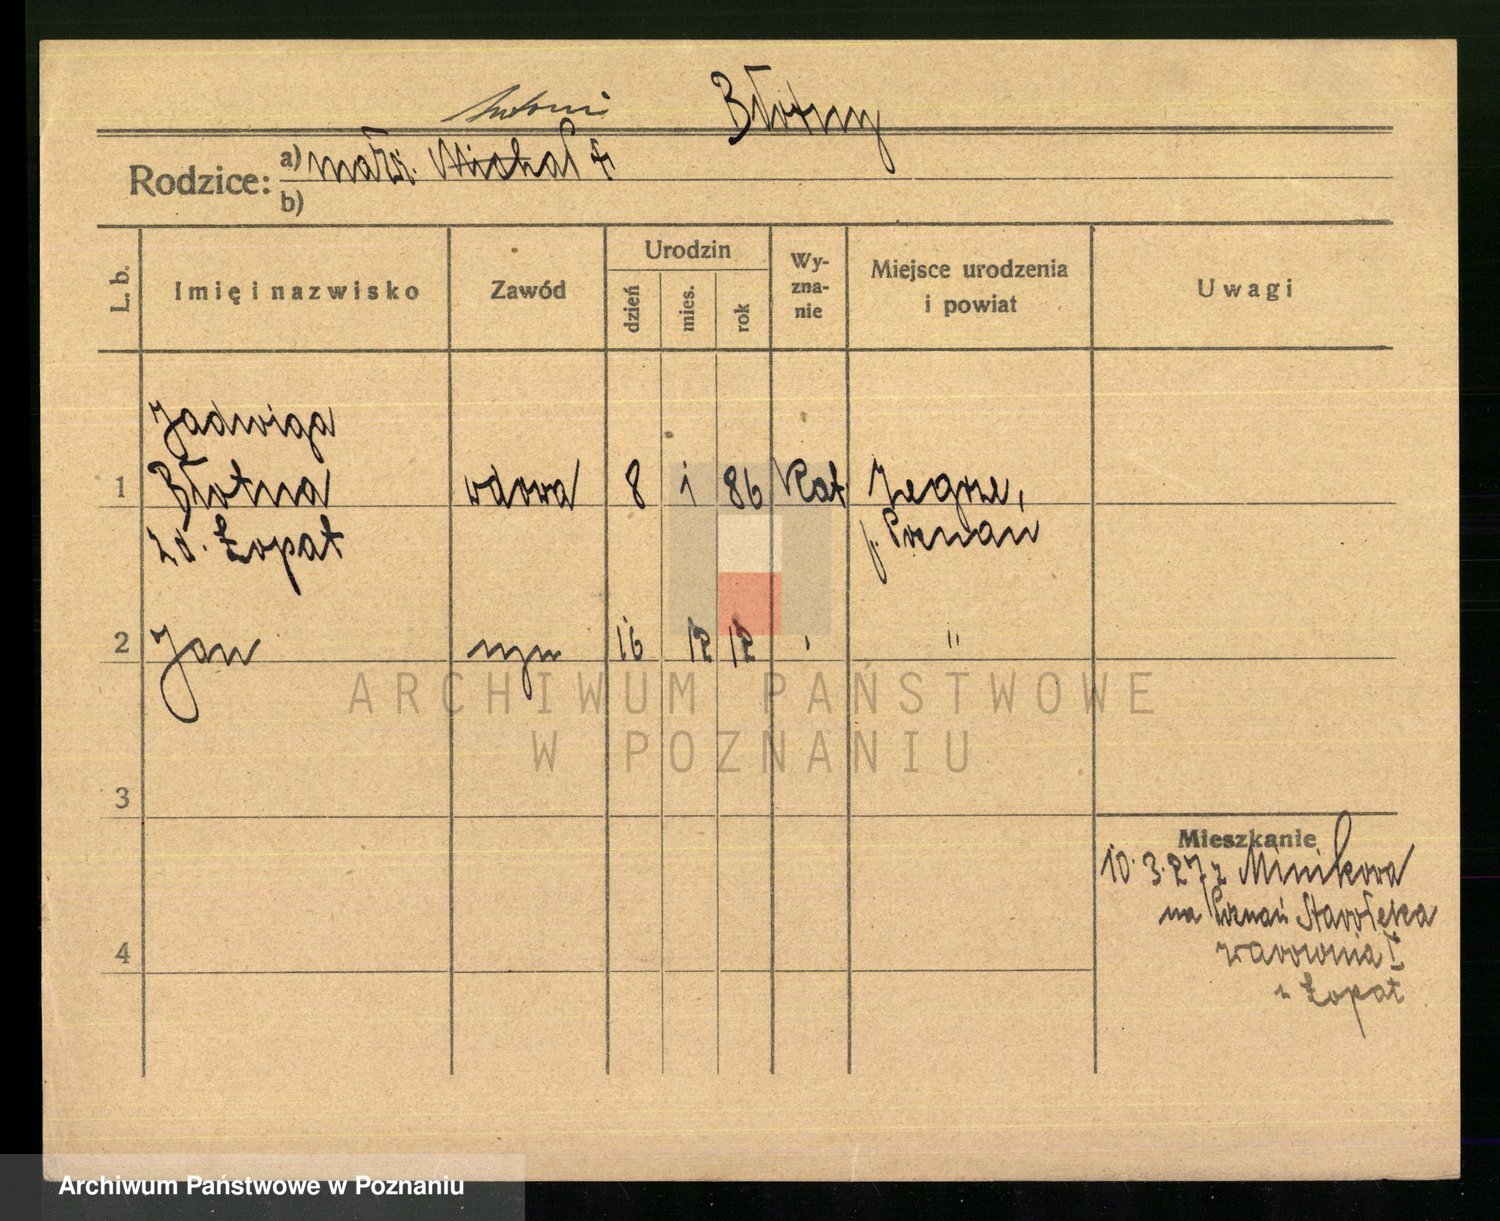 Antoni Błotny
Rodzice: a) małż. Michał †
b)
L. b. Imię i nazwisko Zawód Urodzin dzień mies. rok Wy-zna-nie Miejsce urodzenia i powiat Uwagi
Jadwiga
1 Błotna wdowa 8 1 86 kat Żegrze,
zd. Łopat p. Poznań
2 Jan syn 16 12 12 " "
ARCHIWUM PAŃSTWOWE
W POZNANIU
3
Mieszkanie
10.3.27 z Minikowa
na Poznań Starołęka
4
u Łopat
Archiwum Państwowe w Poznaniu